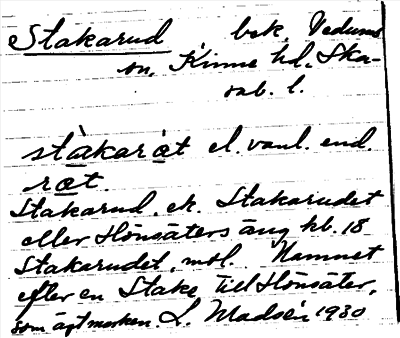 Stakarud bek. Vedums
sn, Kinne hd. Ska-
rab. l.
stàkaràt el. vanl. end.
ràt.
Stakarud. ek. Stakarudet
eller Hönsäters äng kb. 18
Stakarudet. msl. Namnet
efter en Stake till Hönsäter,
som ägt marken. L. Madsén 1930